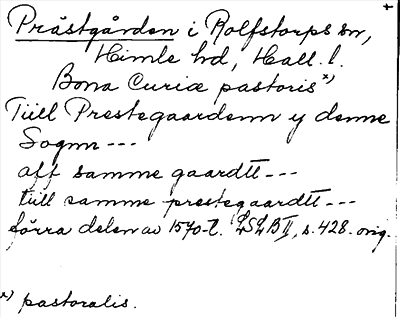 Prästgården i Rolfstorps sn,
Himle hd, Hall. l.
Bona Curiæ pastoris x)
Tiill Prestegaardenn y denne
Sognn ---
aff samme gaardtt ---
tiill samme prestegaardtt ---
förra delen av 1570-t. LSLB II, s. 428. orig.
x) pastoralis.